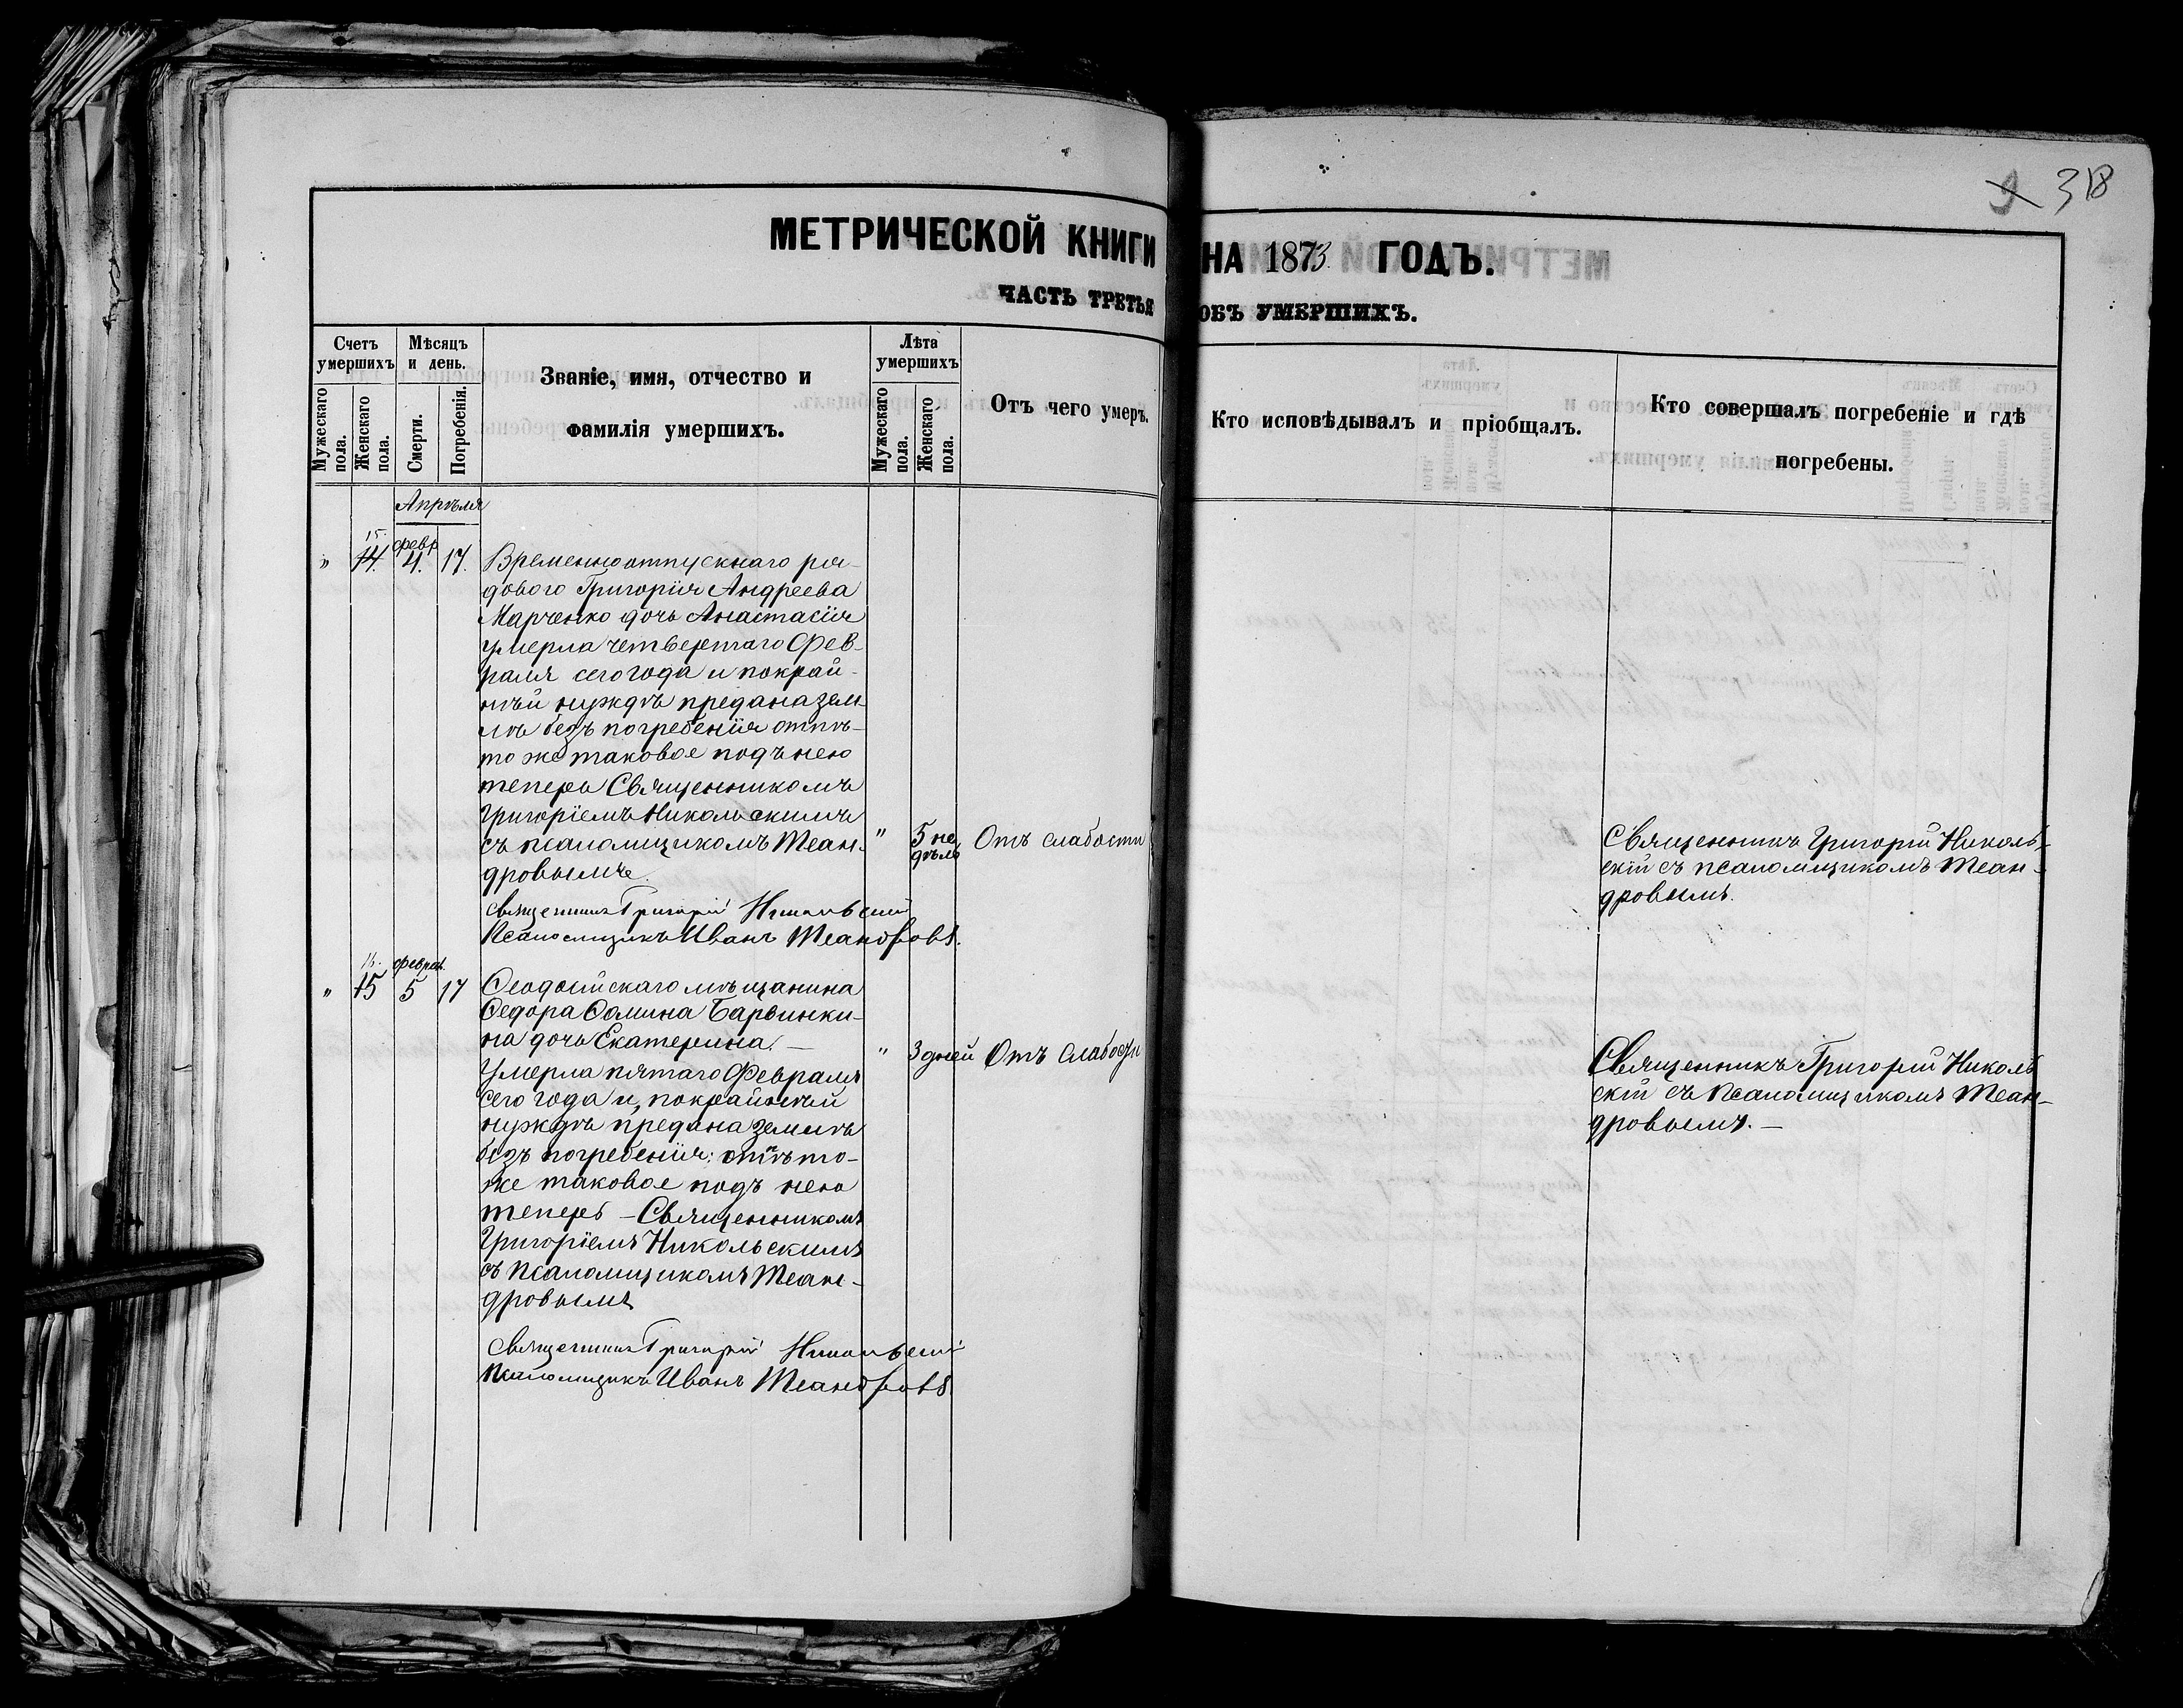 318
МЕТРИЧЕСКОЙ КНИГИ НА 1873 ГОДЪ.
ЧАСТЬ ТРЕТЬЯ ОБЪ УМЕРШИХЪ.
Счетъ умершихъ
Мужескаго пола.
Женскаго пола.
Мѣсяцъ и день.
Смерти.
Погребенія.
Званіе, имя, отчество и
фамилія умершихъ.
Лѣта умершихъ
Мужескаго пола.
Женскаго пола.
Отъ чего умеръ.
Кто исповѣдывалъ и пріобщалъ.
Кто совершалъ погребеніе и гдѣ
погребены.
Апрѣля
15.
февр
" 14. 4. 17. Временноотпускнаго ря-
доваго Григорія Андреева
Марченко дочь Анастасія
умерла четвертаго Фев-
раля сего года и по край-
нѣй нуждѣ предана зем-
лѣ безъ погребенія отпѣ-
то же таковое подъ нею
теперь Священникомъ
Григоріемъ Никольскимъ
съ псаломщикомъ Теан-
дровымъ.
" 5 недѣль
Отъ слабости
Священникъ Григорій Николь-
скій съ псаломщикомъ Теан-
дровымъ.
Священникъ Григорій Никольскій
Псаломщикъ Иванъ Теандровъ.
16. феврал.
" 15 5 17 Ѳеодосійскаго мѣщанина
Ѳедора Ѳомина Барвинки-
на дочь Екатерина. —
Умерла пятаго Февраля
сего года и, по крайнѣй
нуждѣ предана землѣ
безъ погребенія: отпѣто-
же таковое подъ нею
теперь — Священникомъ
Григоріемъ Никольскимъ
съ псаломщикомъ Теан-
дровымъ
" 3 дней
Отъ слабости
Священникъ Григорій Николь
скій съ псаломщикомъ Теан-
дровымъ. —
Священникъ Григорій Никольскій
Псаломщикъ Иванъ Теандровъ